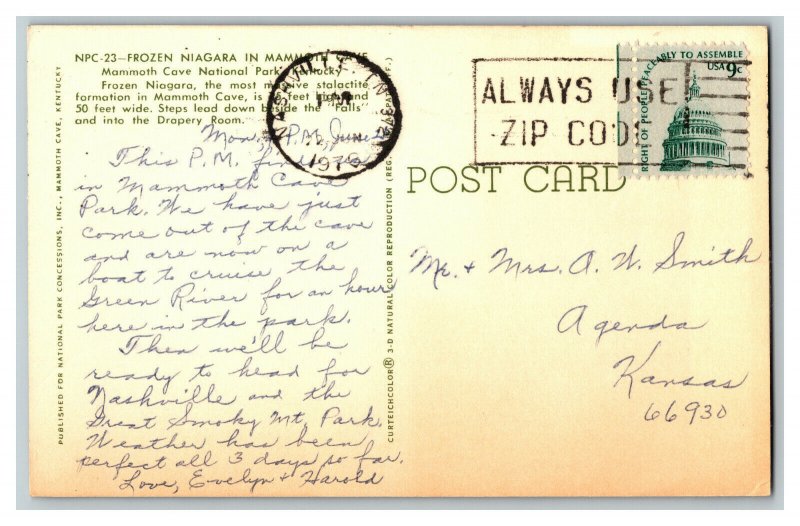 NPC-23—FROZEN NIAGARA IN MAMMOTH CAVE
Mammoth Cave National Park, Kentucky
Frozen Niagara, the most massive stalactite
formation in Mammoth Cave, is feet high and
50 feet wide. Steps lead down beside the "Falls"
and into the Drapery Room.
Mon., P.M., June
This P.M. finds us
in Mammoth Cave
Park. We have just
come out of the cave
and are now on a
boat to cruise the
Green River for an hour
here in the park.
Then we'll be
ready to head for
Nashville and the
Great Smoky Mt. Park.
Weather has been
perfect all 3 days so far.
Love, Evelyn + Harold
PUBLISHED FOR NATIONAL PARK CONCESSIONS, INC., MAMMOTH CAVE, KENTUCKY
CURTEICHCOLOR® 3-D NATURAL COLOR REPRODUCTION (REG. U.S.A. PAT. OFF.)
NASHVILLE, TN
PM
197
ALWAYS USE
ZIP CODE
RIGHT OF PEOPLE PEACEABLY TO ASSEMBLE
USA 9c
POST CARD
Mr. + Mrs. A. W. Smith
Agenda
Kansas
66930